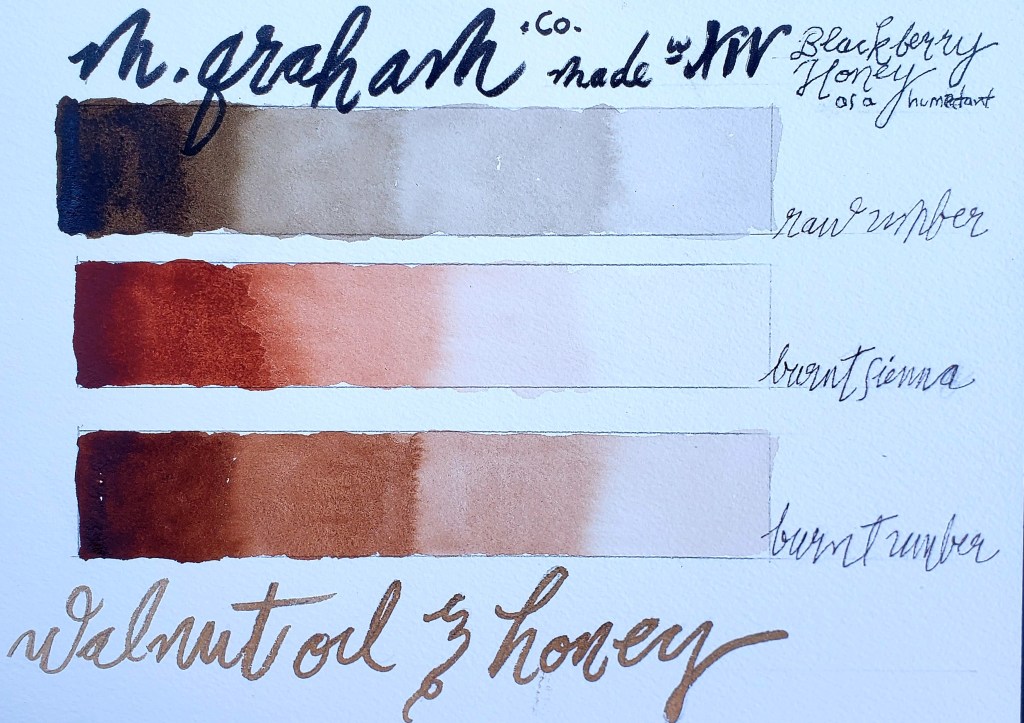 m. graham · Co.
made in NW
Blackberry
Honey
as a humectant
raw umber
burnt sienna
burnt umber
Walnut oil & honey